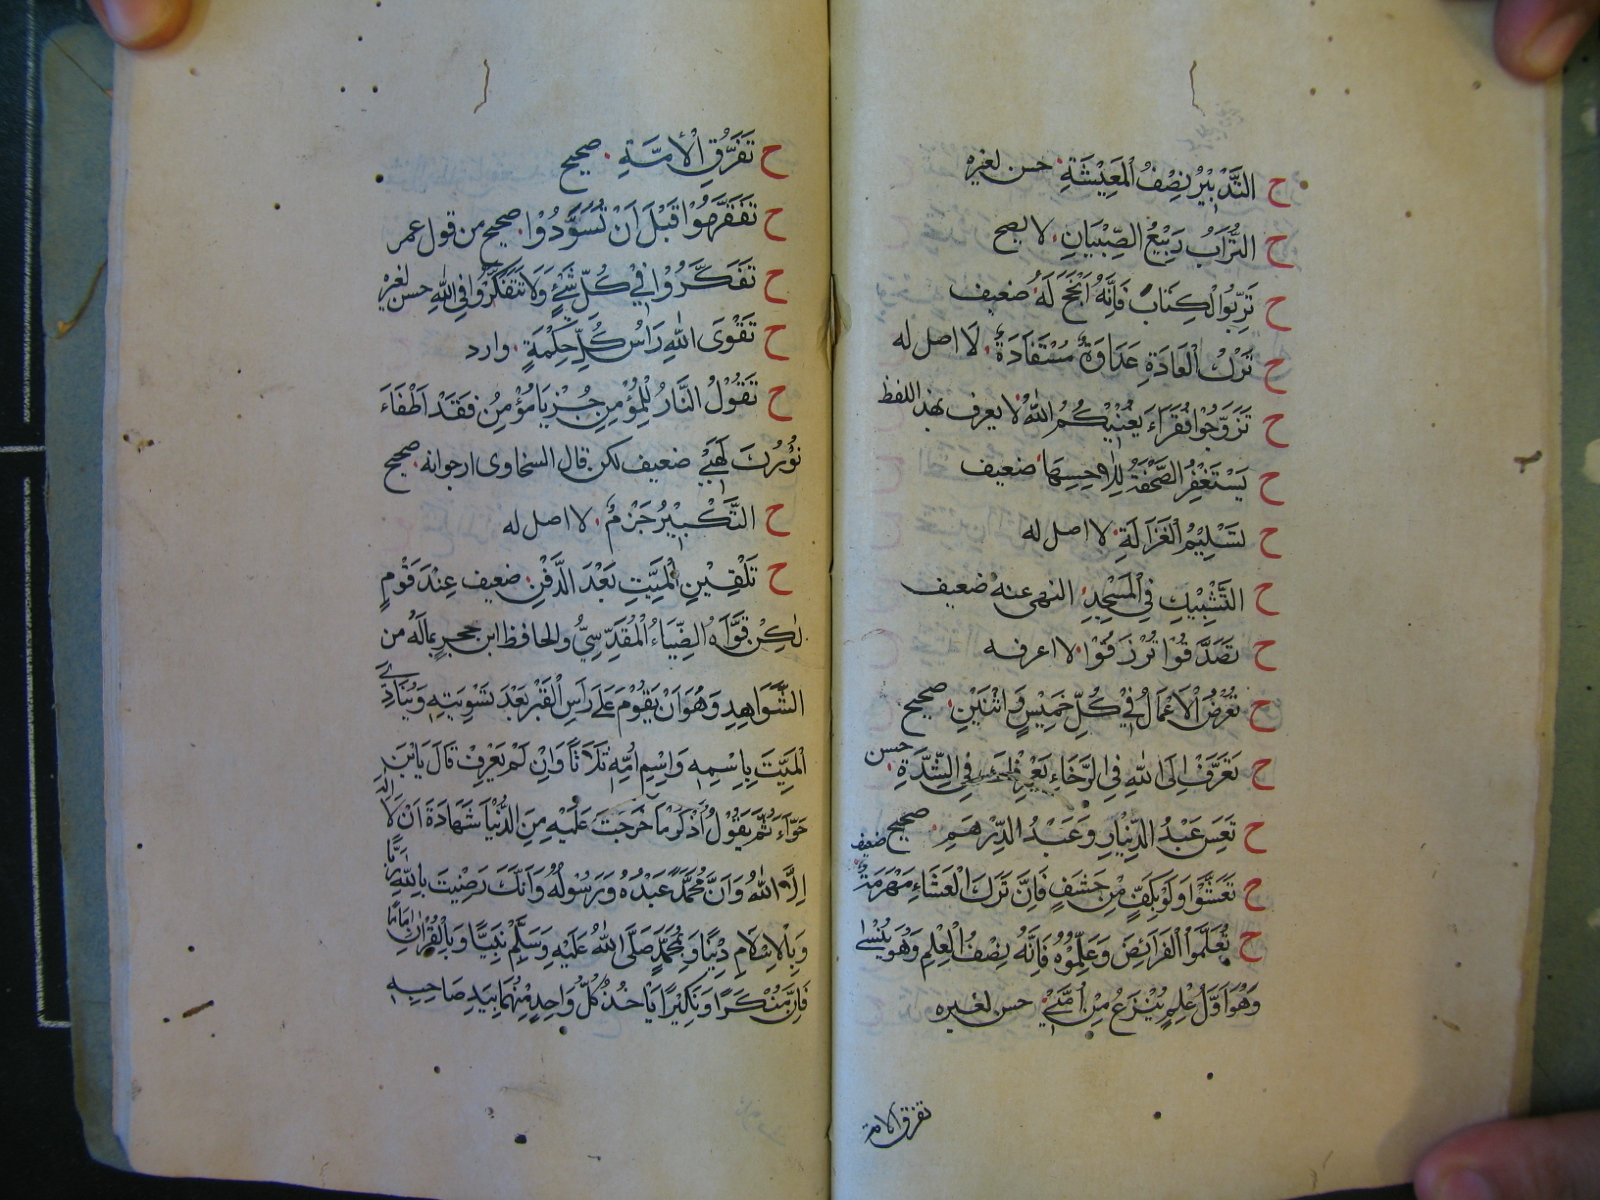 ح التَّدْبِيْرُ نِصْفُ الْمَعِيْشَةِ. حسن لغيره
ح التُّرَابُ رَبِيْعُ الصِّبْيَانِ. لا يصح
ح تَرِّبُوا الْكِتَابَ فَاِنَّهُ اَنْجَحُ لَهُ ضعيف
ح تَرْكُ الْعَادَةِ عَدَاوَةٌ مُسْتَفَادَةٌ. لا اصل له
ح تَزَوَّجُوْا فُقَرَاءَ يُغْنِيْكُمُ اللهُ لا يعرف بهذا اللفظ
ح يَسْتَغْفِرُ الصَّحْفَةُ لِلَاحِسِهَا ضعيف
ح تَسْلِيْمُ الْغَزَالَةِ. لا اصل له
ح التَّشْبِيْكِ فِي الْمَسْجِدِ. النهى عنه ضعيف
ح تَصَدَّقُوْا تُرْزَقُوْا. لا اعرفه
ح تُعْرَضُ الْاَعْمَالُ فِيْ كُلِّ خَمِيْسٍ وَاثْنَيْنِ. صحيح
ح تَعَرَّفْ اِلَى اللهِ فِي الرَّخَاءِ يَعْرِفْكَ فِي الشِّدَّةِ. حسن
ح تَعِسَ عَبْدُ الدِّيْنَارِ وَعَبْدُ الدِّرْهَمِ. صحيح
ح تَعَشَّوْا وَلَوْ بِكَفٍّ مِنْ حَشَفٍ فَاِنَّ تَرْكَ الْعَشَاءِ مَهْرَمَةٌ ضعيف
ح تَعَلَّمُوا الْفَرَائِضَ وَعَلِّمُوْهُ فَاِنَّهُ نِصْفُ الْعِلْمِ وَهُوَ يُنْسٰى
وَهُوَ اَوَّلُ عِلْمٍ يُنْزَعُ مِنْ اُمَّتِيْ. حسن لغيره
تفرق الامة
ح تَفَرُّقِ الْاُمَّةِ. صحيح
ح تَفَقَّهُوْا قَبْلَ اَنْ تُسَوَّدُوْا. صحيح من قول عمر
ح تَفَكَّرُوْا فِيْ كُلِّ شَيْءٍ وَلَا تَتَفَكَّرُوْا فِي اللهِ حسن لغيره
ح تَقْوَى اللهِ رَاْسُ كُلِّ حِكْمَةٍ. وارد
ح تَقُوْلُ النَّارُ لِلْمُؤْمِنِ جُزْ يَا مُؤْمِنُ فَقَدْ اَطْفَاءَ
نُوْرُكَ لَهَبِيْ ضعيف لكن قال السخاوى ارجو انه صحيح
ح التَّكْبِيْرُ جَزْمٌ. لا اصل له
ح تَلْقِيْنِ الْمَيِّتِ بَعْدَ الدَّفْنِ. ضعيف عِنْدَ قَوْمٍ
لٰكِنْ قَوَّاهُ الضِّيَاءُ الْمُقَدِّسِيُّ والحافظ ابن حجر بِمَالَهُ من
الشَّوَاهِدِ وَهُوَ اَنْ يَقُوْمَ عَلٰى رَاْسِ الْقَبْرِ بَعْدَ تَسْوِيَتِهٖ وَيُنَادِيْ
الْمَيِّتَ بِاِسْمِهٖ وَاِسْمِ اُمِّهٖ ثَلَاثًا وَاِنْ لَمْ يَعْرِفْ قَالَ يَا ابْنَ
حَوَّاءَ ثُمَّ يَقُوْلُ اُذْكُرْ مَا خَرَجْتَ عَلَيْهِ مِنَ الدُّنْيَا شَهَادَةَ اَنْ لَا اِلٰهَ
اِلَّا اللهُ وَاَنَّ مُحَمَّدًا عَبْدُهُ وَرَسُوْلُهُ وَاَنَّكَ رَضِيْتَ بِاللهِ رَبًّا
وَبِالْاِسْلَامِ دِيْنًا وَبِمُحَمَّدٍ صَلَّى اللهُ عَلَيْهِ وَسَلَّمَ نَبِيًّا وَبِالْقُرْاٰنِ اِمَامًا
فَاِنَّ مُنْكَرًا وَنَكِيْرًا يَاْخُذُ كُلُّ وَاحِدٍ مِنْهُمَا بِيَدِ صَاحِبِهٖ